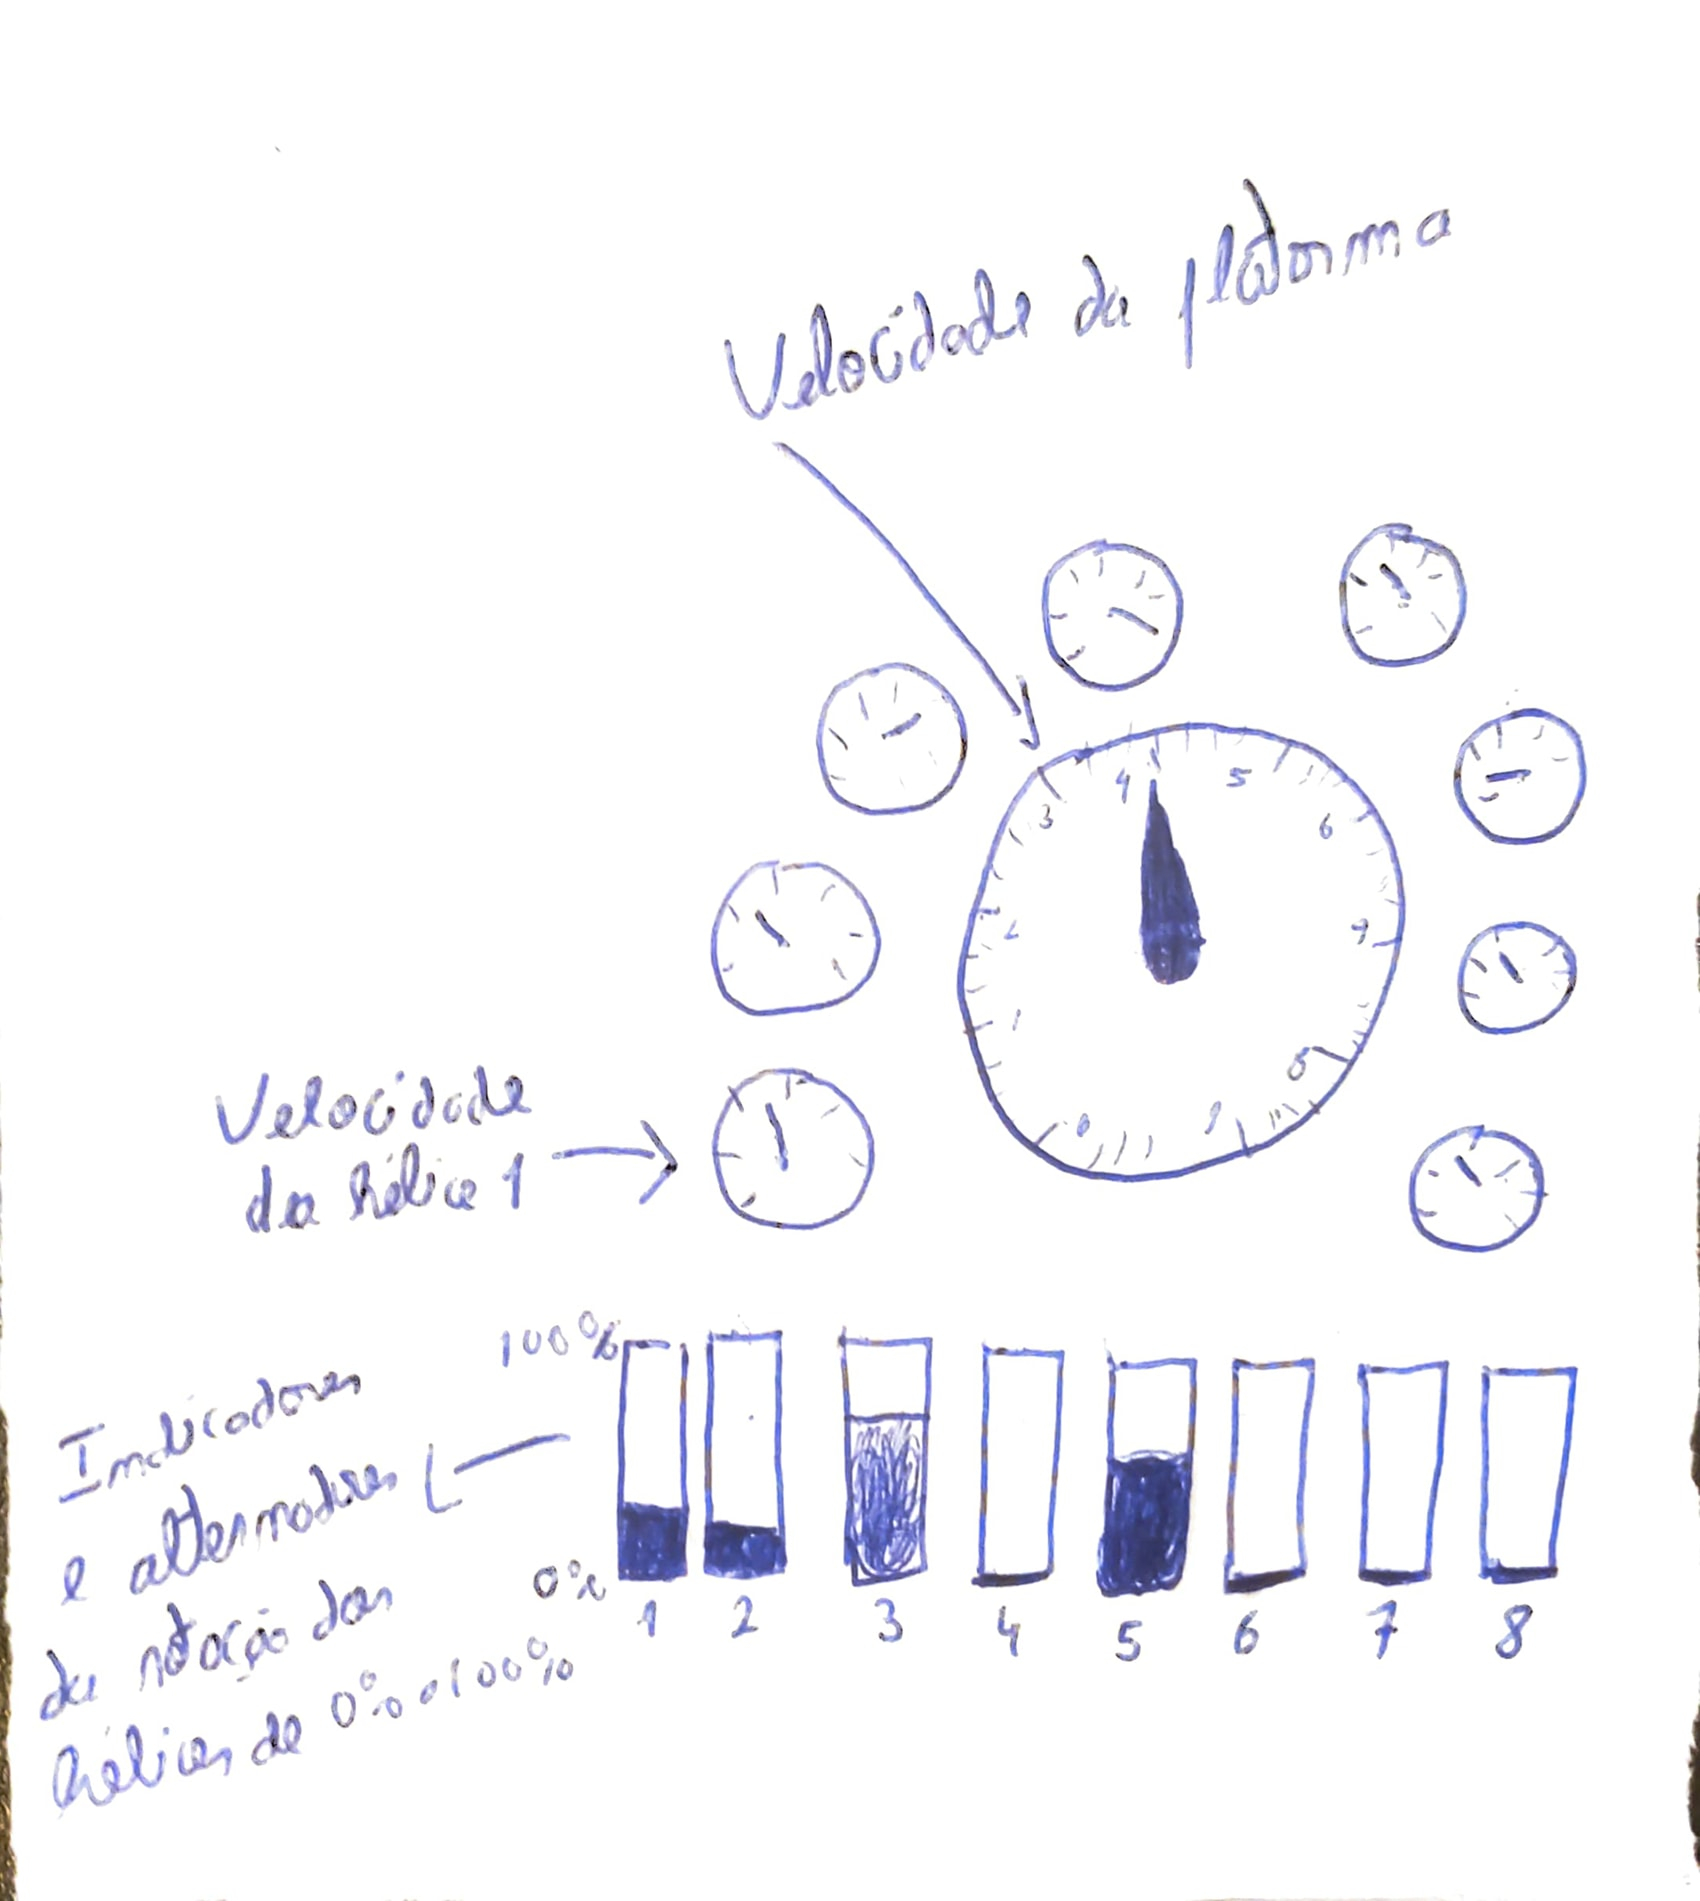 Velocidade da platorma
4
5
3
6
2
7
1
8
0
9
Velocidade
da hélice 1
100%
Indicadores
e alternadores
da rotação das
hélices de 0% a 100%
0%
1 2 3 4 5 6 7 8